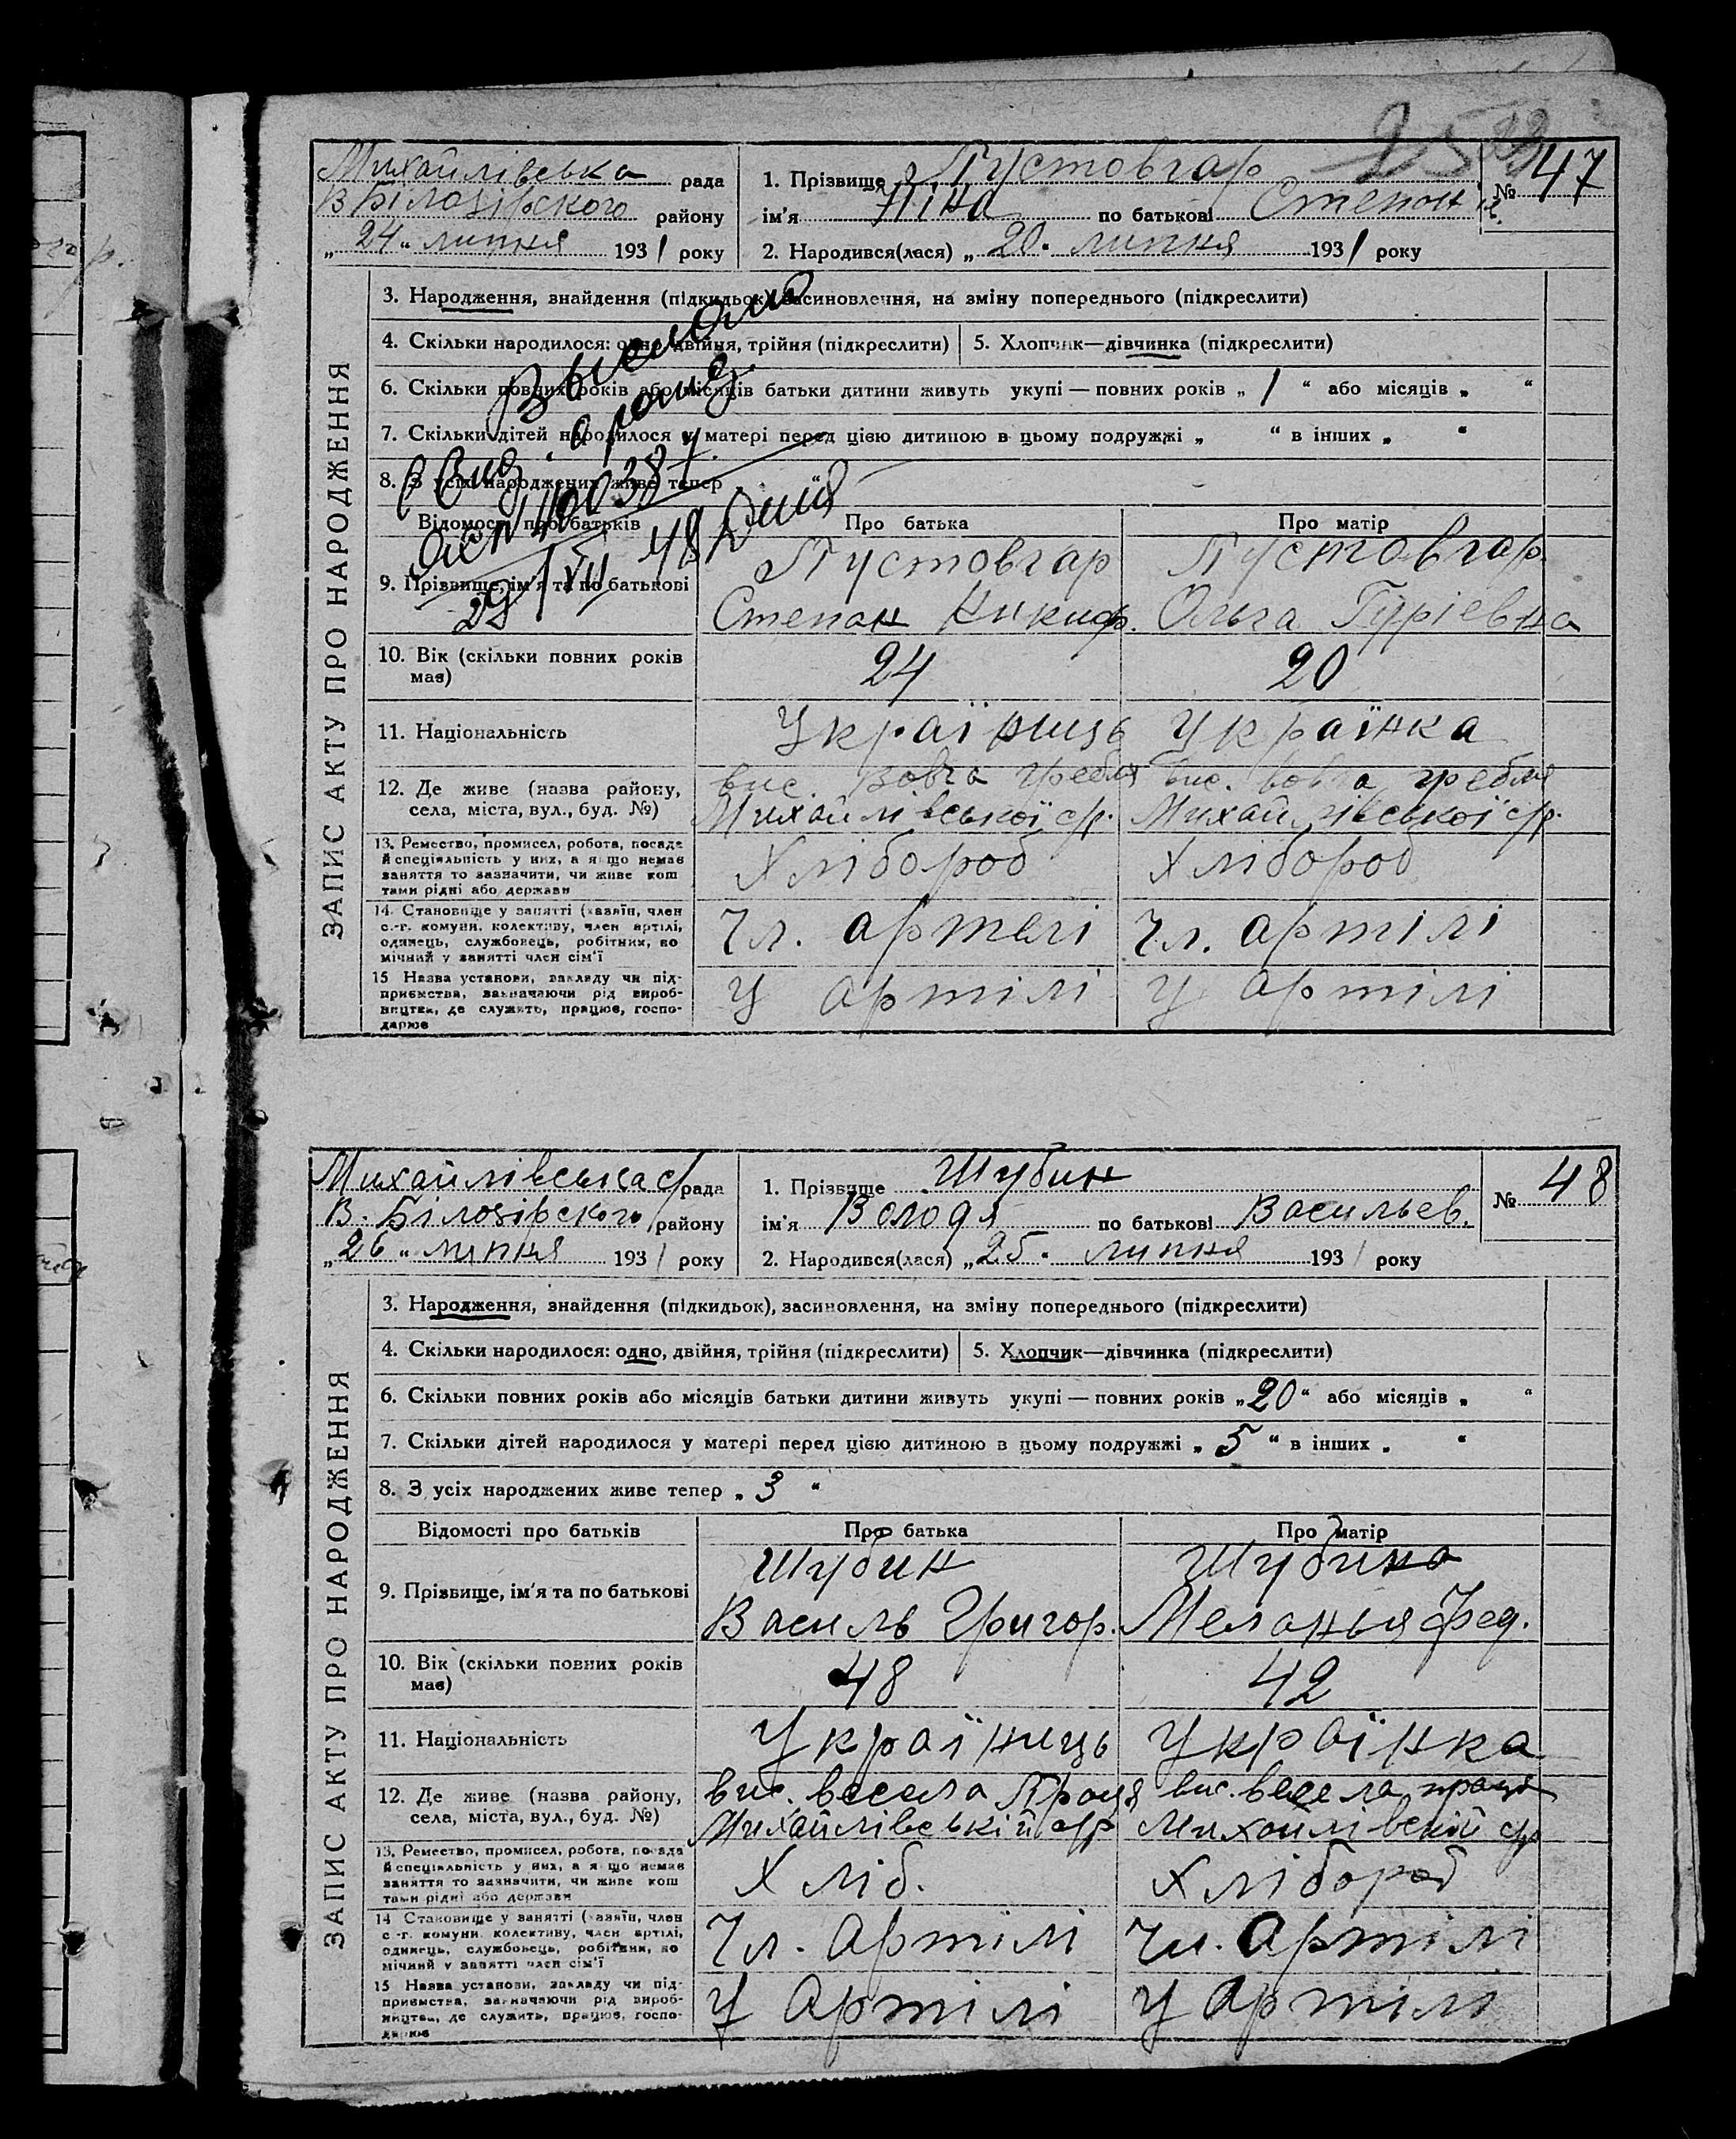 Михайлівська рада
В Білозірского району
„24“ липня 1931 року
1. Прізвище Пустовгар
ім'я Ніна по батькові Степон
2. Народився(лася) „20“ липня 1931 року
№ 47
ЗАПИС АКТУ ПРО НАРОДЖЕННЯ
3. Народження, знайдення (підкидьок), засиновлення, на зміну попереднього (підкреслити)
4. Скільки народилося: одно, двійня, трійня (підкреслити)
5. Хлопчик—дівчинка (підкреслити)
6. Скільки повних років або місяців батьки дитини живуть укупі — повних років „ 1 “ або місяців „ “
7. Скільки дітей народилося у матері перед цією дитиною в цьому подружжі „ “ в інших „ “
8. З усіх народжених живе тепер
Відомості про батьків Про батька Про матір
9. Прізвище, ім'я та по батькові
Пустовгар Пустовгар
Степан Никиф. Ольга Гуріевна
10. Вік (скільки повних років має) 24 20
11. Національність Українець Українка
12. Де живе (назва району, села, міста, вул., буд. №)
вис. Вовча гребля вис. вовча гребля
Михайлівської с/р. Михайлівської с/р.
13. Ремество, промисел, робота, посада й спеціяльність у них, а якщо немає заняття то зазначити, чи живе коштами рідні або держави
Хлібороб Хлібороб
14. Становище у занятті (хазяїн, член с.-г. комуни, колективу, член артілі, одинець, службовець, робітник, помічний у занятті член сім'ї
Чл. артелі Чл. артілі
15 Назва установи, закладу чи підприємства, зазначаючи рід виробництва, де служить, працює, господарює
У артілі У артілі
Михайлівська с/рада
В. Білозірского району
„26“ липня 1931 року
1. Прізвище Шубин
ім'я Володя по батькові Васильев.
2. Народився(лася) „25“ липня 1931 року
№ 48
ЗАПИС АКТУ ПРО НАРОДЖЕННЯ
3. Народження, знайдення (підкидьок), засиновлення, на зміну попереднього (підкреслити)
4. Скільки народилося: одно, двійня, трійня (підкреслити)
5. Хлопчик—дівчинка (підкреслити)
6. Скільки повних років або місяців батьки дитини живуть укупі — повних років „20“ або місяців „ “
7. Скільки дітей народилося у матері перед цією дитиною в цьому подружжі „ 5 “ в інших „ “
8. З усіх народжених живе тепер „ 3 “
Відомості про батьків Про батька Про матір
9. Прізвище, ім'я та по батькові
Шубин Шубина
Василь Григор. Меланья Фед.
10. Вік (скільки повних років має) 48 42
11. Національність Українець Українка
12. Де живе (назва району, села, міста, вул., буд. №)
вис. весела Праця вис. весела праця
Михайлівській с/р Михайлівскій с/р
13. Ремество, промисел, робота, посада й спеціяльність у них, а якщо немає заняття то зазначити, чи живе коштами рідні або держави
Хліб. Хлібороб
14 Становище у занятті (хазяїн, член с.-г. комуни, колективу, член артілі, одинець, службовець, робітник, помічний у занятті член сім'ї
Чл. Артілі Чл. Артілі
15 Назва установи, закладу чи підприємства, зазначаючи рід виробництва, де служить, працює, господарює
У Артілі У Артілі